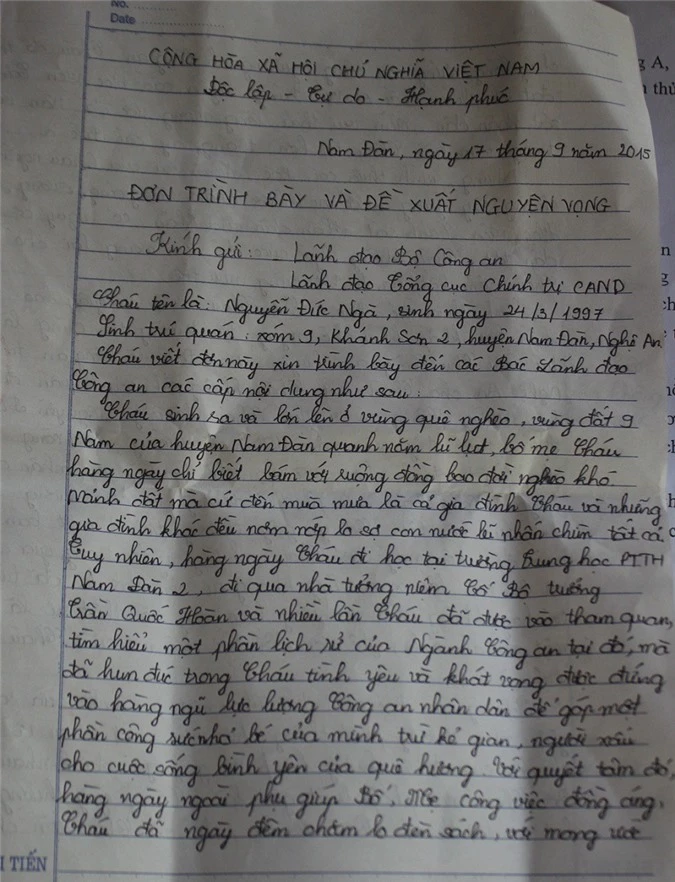 No. ....................
Date ....................
CỘNG HÒA XÃ HỘI CHỦ NGHĨA VIỆT NAM
Độc lập - Tự do - Hạnh phúc
Nam Đàn, ngày 17 tháng 9 năm 2015
ĐƠN TRÌNH BÀY VÀ ĐỀ XUẤT NGUYỆN VỌNG
Kính gửi: - Lãnh đạo Bộ Công an
Lãnh đạo Tổng cục Chính trị CAND
Cháu tên là: Nguyễn Đức Ngà, sinh ngày 24/3/1997
Sinh trú quán: xóm 9, Khánh Sơn 2, huyện Nam Đàn, Nghệ An.
Cháu viết đơn này xin trình bày đến các Bác Lãnh đạo
Công an các cấp nội dung như sau:
Cháu sinh ra và lớn lên ở vùng quê nghèo, vùng đất 9
Nam của huyện Nam Đàn quanh năm lũ lụt, bố mẹ Cháu
hàng ngày chỉ biết bám với ruộng đồng bao đời nghèo khó
Mảnh đất mà cứ đến mùa mưa là cả gia đình Cháu và những
gia đình khác đều nơm nớp lo sợ con nước lũ nhấn chìm tất cả.
Tuy nhiên, hàng ngày Cháu đi học tại trường Trung học PTTH
Nam Đàn 2, đi qua nhà tưởng niệm Cố Bộ trưởng
Trần Quốc Hoàn và nhiều lần Cháu đã được vào tham quan,
tìm hiểu một phần lịch sử của Ngành Công an tại đó, mà
đã hun đúc trong Cháu tình yêu và khát vọng được đứng
vào hàng ngũ lực lượng Công an nhân dân để góp một
phần công sức nhỏ bé của mình trừ kẻ gian, người xấu
cho cuộc sống bình yên của quê hương. Với quyết tâm đó,
hàng ngày ngoài phụ giúp Bố, Mẹ công việc đồng áng.
Cháu đã ngày đêm chăm lo đèn sách, với mong ước
I TIẾN